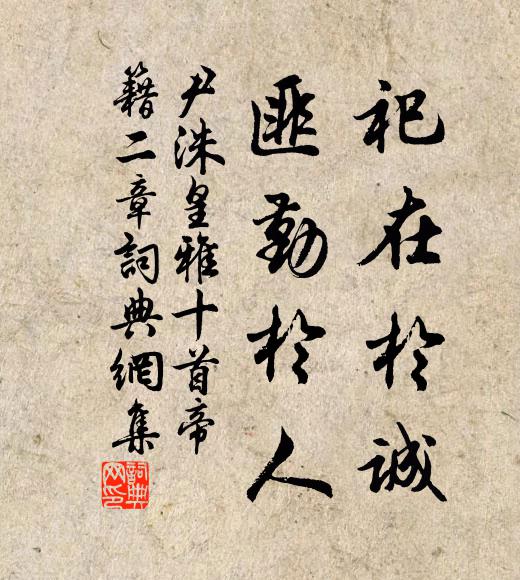 祀在於誠
匪勤於人
尹洙皇雅十首帝
籍二章詞典網集
詞典网印